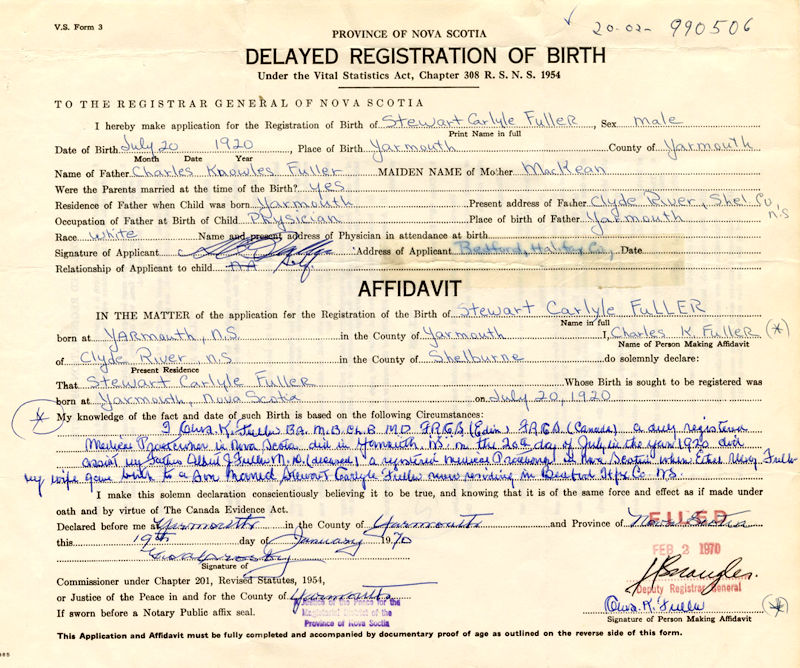 V.S. Form 3
20-02- 990506
PROVINCE OF NOVA SCOTIA
DELAYED REGISTRATION OF BIRTH
Under the Vital Statistics Act, Chapter 308 R. S. N. S. 1954
TO THE REGISTRAR GENERAL OF NOVA SCOTIA
I hereby make application for the Registration of Birth of Stewart Carlyle Fuller, Sex male
Print Name in full
Date of Birth July 20 1920, Place of Birth Yarmouth County of Yarmouth
Month Date Year
Name of Father Charles Knowles Fuller MAIDEN NAME of Mother MacKean
Were the Parents married at the time of the Birth? yes
Residence of Father when Child was born Yarmouth Present address of Father Clyde River, Shel. Co, N.S
Occupation of Father at Birth of Child Physician Place of birth of Father Yarmouth
Race White Name and present address of Physician in attendance at birth
Signature of Applicant Address of Applicant Bedford, Halifax Co., Date
Relationship of Applicant to child NA Self.
AFFIDAVIT
IN THE MATTER of the application for the Registration of the Birth of Stewart Carlyle FULLER
Name in full
born at YARmouth, N.S in the County of Yarmouth I, Charles K. Fuller (*)
Name of Person Making Affidavit
of Clyde River, N.S in the County of Shelburne do solemnly declare:
Present Residence
That Stewart Carlyle Fuller Whose Birth is sought to be registered was
born at Yarmouth, Nova Scotia on July 20, 1920
* My knowledge of the fact and date of such Birth is based on the following Circumstances:
I Chas. K. Fuller B.A. M.B. Ch.B. M.D. F.R.C.S. (Edin) F.R.C.S (Canada) a duly registered
Medical Practicioner in Nova Scotia did in Yarmouth N.S. on the 20th day of July in the year 1920 did
assist my Father Albert J. Fuller M.D. (deceased) a registered medical in Nova Scotia when Ethel Fuller
my wife gave birth to a Son Named Stewart Carlyle Fuller now residing in Bedford Hfx Co N.S.
I make this solemn declaration conscientiously believing it to be true, and knowing that it is of the same force and effect as if made under
oath and by virtue of The Canada Evidence Act.
Declared before me at Yarmouth in the County of Yarmouth and Province of Nova Scotia
FILED
this 19th day of January 1970
FEB 2 1970
Signature of
Commissioner under Chapter 201, Revised Statutes, 1954,
Deputy Registrar General
or Justice of the Peace in and for the County of Yarmouth
Justice of the Peace for the
Chas. K. Fuller (*)
If sworn before a Notary Public affix seal.
Magisterial District of the
Province of Nova Scotia
Signature of Person Making Affidavit
This Application and Affidavit must be fully completed and accompanied by documentary proof of age as outlined on the reverse side of this form.